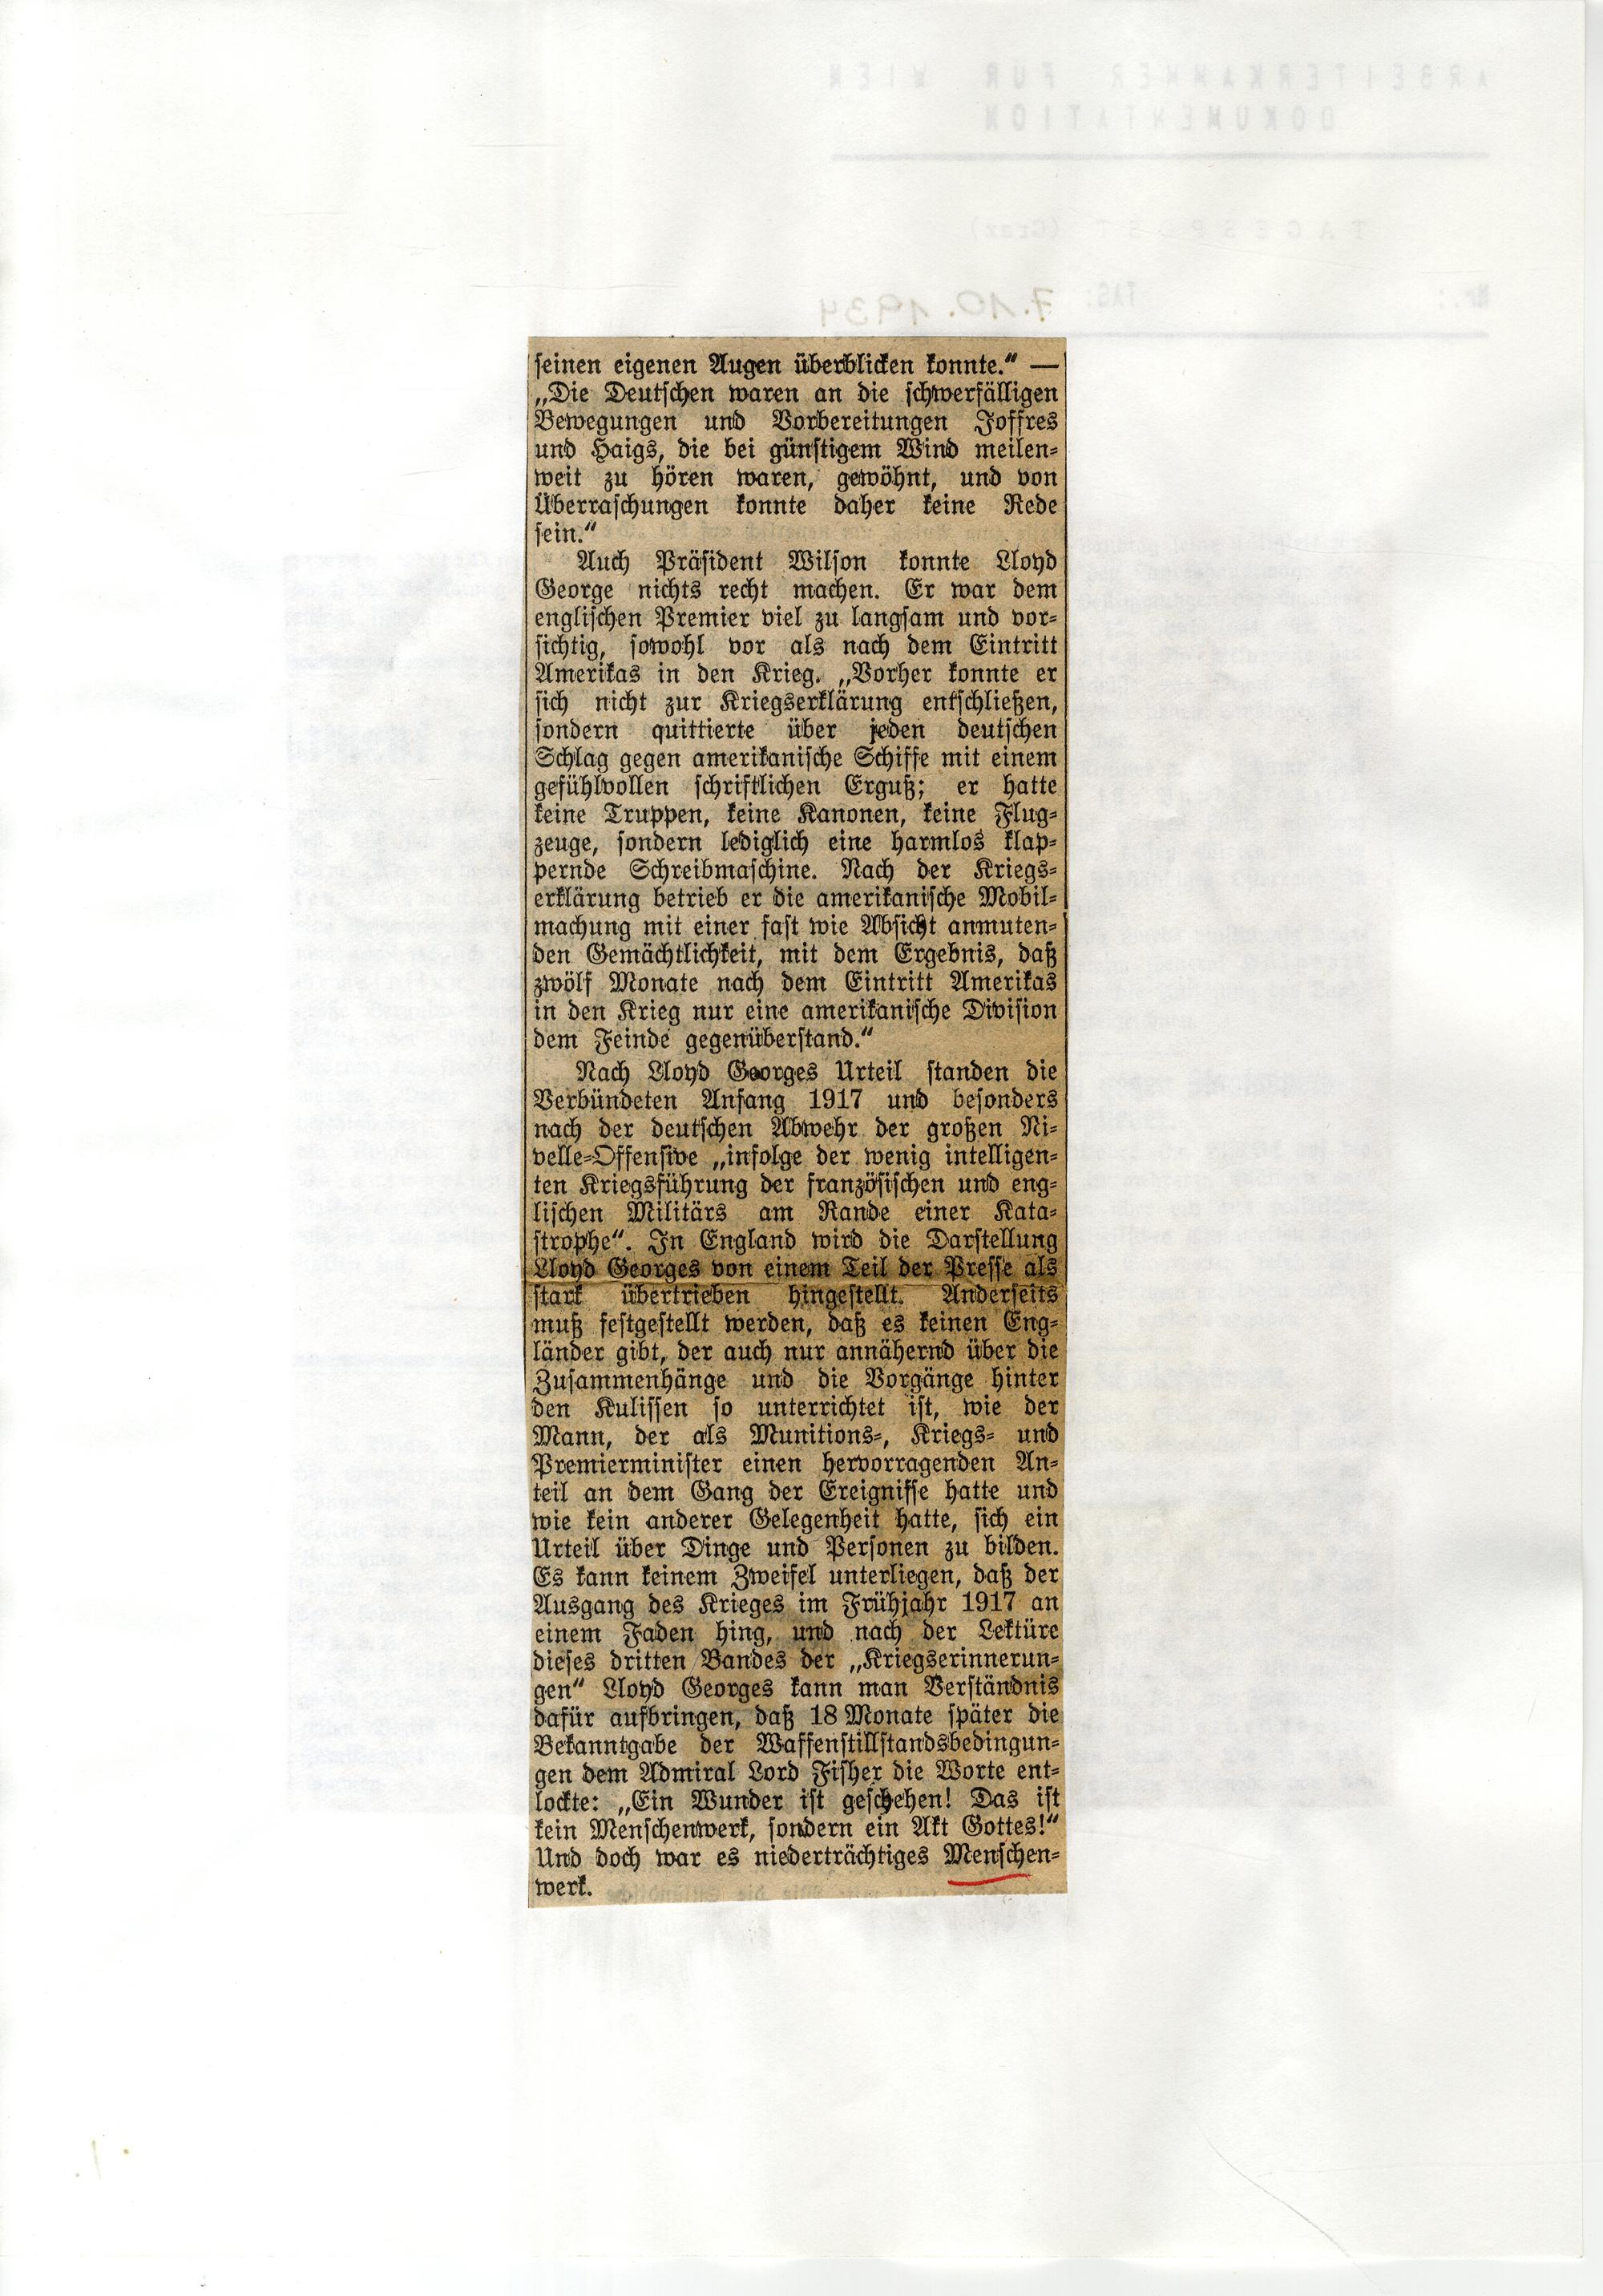 ARBEITERKAMMER FÜR WIEN
DOKUMENTATION
TAGESPOST (Graz)
Nr.: TAG: 7.10.1934
seinen eigenen Augen überblicken konnte.“ —
„Die Deutschen waren an die schwerfälligen
Bewegungen und Vorbereitungen Joffres
und Haigs, die bei günstigem Wind meilen-
weit zu hören waren, gewöhnt, und von
Überraschungen konnte daher keine Rede
sein.“
Auch Präsident Wilson konnte Lloyd
George nichts recht machen. Er war dem
englischen Premier viel zu langsam und vor-
sichtig, sowohl vor als nach dem Eintritt
Amerikas in den Krieg. „Vorher konnte er
sich nicht zur Kriegserklärung entschließen,
sondern quittierte über jeden deutschen
Schlag gegen amerikanische Schiffe mit einem
gefühlvollen schriftlichen Erguß; er hatte
keine Truppen, keine Kanonen, keine Flug-
zeuge, sondern lediglich eine harmlos klap-
pernde Schreibmaschine. Nach der Kriegs-
erklärung betrieb er die amerikanische Mobil-
machung mit einer fast wie Absicht anmuten-
den Gemächtlichkeit, mit dem Ergebnis, daß
zwölf Monate nach dem Eintritt Amerikas
in den Krieg nur eine amerikanische Division
dem Feinde gegenüberstand.“
Nach Lloyd Georges Urteil standen die
Verbündeten Anfang 1917 und besonders
nach der deutschen Abwehr der großen Ni-
velle-Offensive „infolge der wenig intelligen-
ten Kriegsführung der französischen und eng-
lischen Militärs am Rande einer Kata-
strophe“. In England wird die Darstellung
Lloyd Georges von einem Teil der Presse als
stark übertrieben hingestellt. Anderseits
muß festgestellt werden, daß es keinen Eng-
länder gibt, der auch nur annähernd über die
Zusammenhänge und die Vorgänge hinter
den Kulissen so unterrichtet ist, wie der
Mann, der als Munitions-, Kriegs- und
Premierminister einen hervorragenden An-
teil an dem Gang der Ereignisse hatte und
wie kein anderer Gelegenheit hatte, sich ein
Urteil über Dinge und Personen zu bilden.
Es kann keinem Zweifel unterliegen, daß der
Ausgang des Krieges im Frühjahr 1917 an
einem Faden hing, und nach der Lektüre
dieses dritten Bandes der „Kriegserinnerun-
gen“ Lloyd Georges kann man Verständnis
dafür aufbringen, daß 18 Monate später die
Bekanntgabe der Waffenstillstandsbedingun-
gen dem Admiral Lord Fisher die Worte ent-
lockte: „Ein Wunder ist geschehen! Das ist
kein Menschenwerk, sondern ein Akt Gottes!“
Und doch war es niederträchtiges Menschen-
werk.